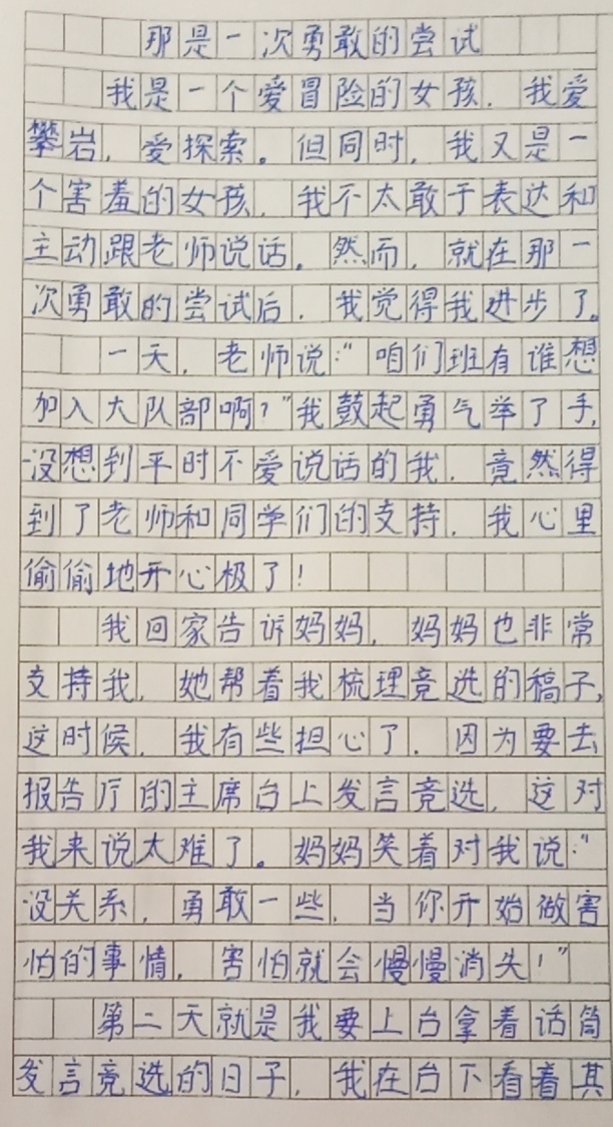 那是一次勇敢的尝试
我是一个爱冒险的女孩，我爱
攀岩，爱探索。但同时，我又是一
个害羞的女孩，我不太敢于表达和
主动跟老师说话。然而，就在那一
次勇敢的尝试后，我觉得我进步了。
一天，老师说：“咱们班有谁想
加入大队部啊？”我鼓起勇气举了手，
没想到平时不爱说话的我，竟然得
到了老师和同学们的支持，我心里
偷偷地开心极了！
我回家告诉妈妈，妈妈也非常
支持我，她帮着我梳理竞选的稿子，
这时候，我有些担心了，因为要去
报告厅的主席台上发言竞选，这对
我来说太难了。妈妈笑着对我说：“
没关系，勇敢一些，当你开始做害
怕的事情，害怕就会慢慢消失！”
第二天就是我要上台拿着话筒
发言竞选的日子，我在台下看着其